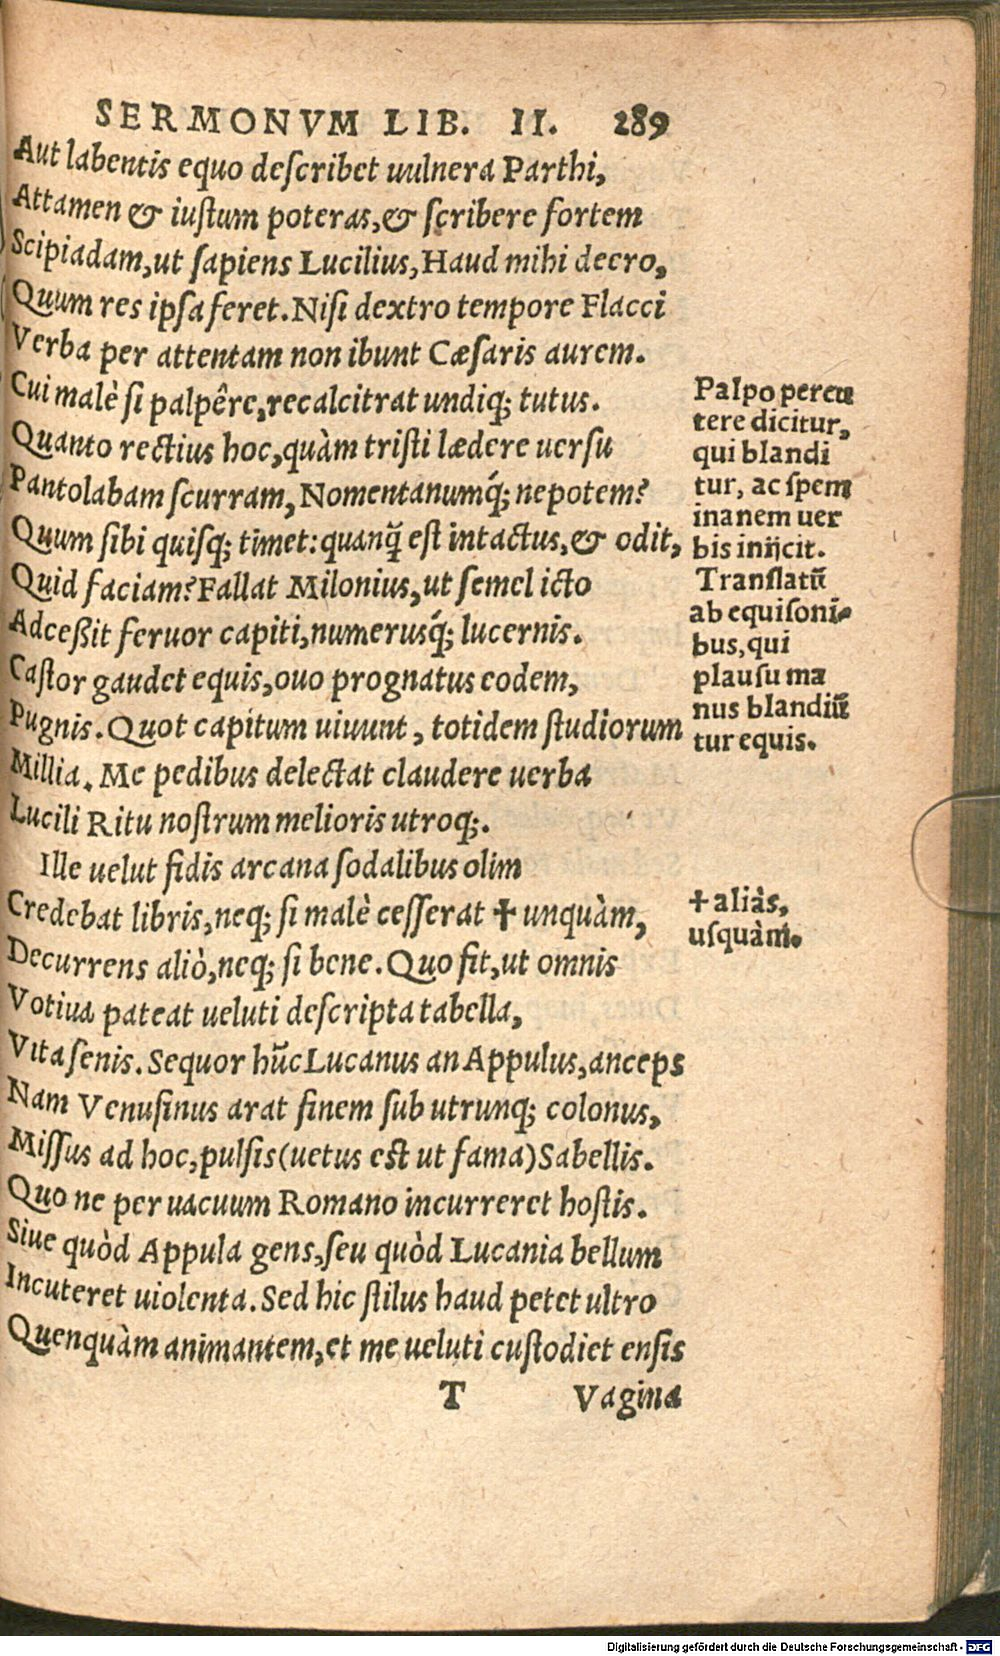 SERMONVM LIB. II. 289
Aut labentis equo describet uulnera Parthi,
Attamen & iustum poteras,& scribere fortem
Scipiadam,ut sapiens Lucilius,Haud mihi deero,
Quum res ipsa feret.Nisi dextro tempore Flacci
Verba per attentam non ibunt Cæsaris aurem.
Cui malè si palpêre,recalcitrat undiq; tutus.
Quanto rectius hoc,quàm tristi lædere uersu
Pantolabam scurram,Nomentanumq́; nepotem?
Quum sibi quisq; timet:quanq̃ est intactus,& odit,
Quid faciam?Fallat Milonius,ut semel icto
Adceßit feruor capiti,numerusq́; lucernis.
Castor gaudet equis,ouo prognatus eodem,
Pugnis. Quot capitum uiuunt, totidem studiorum
Millia. Me pedibus delectat claudere uerba
Lucili Ritu nostrum melioris utroq;.
Ille uelut fidis arcana sodalibus olim
Credebat libris,neq; si malè cesserat ✝ unquàm,
Decurrens aliò,neq; si bene. Quo fit,ut omnis
Votiua pateat ueluti descripta tabella,
Vita senis. Sequor hũc Lucanus an Appulus,anceps
Nam Venusinus arat finem sub utrunq; colonus,
Missus ad hoc,pulsis(uetus est ut fama)Sabellis.
Quo ne per uacuum Romano incurreret hostis.
Siue quòd Appula gens,seu quòd Lucania bellum
Incuteret uiolenta. Sed hic stilus haud petet ultro
Quenquàm animantem,et me ueluti custodiet ensis
T Vagina
Palpo percu
tere dicitur,
qui blandi
tur, ac spem
inanem uer
bis inijcit.
Translatũ
ab equisoni-
bus,qui
plausu ma
nus blandiũ
tur equis.
✝ aliàs,
usquàm.
Digitalisierung gefördert durch die Deutsche Forschungsgemeinschaft - DFG